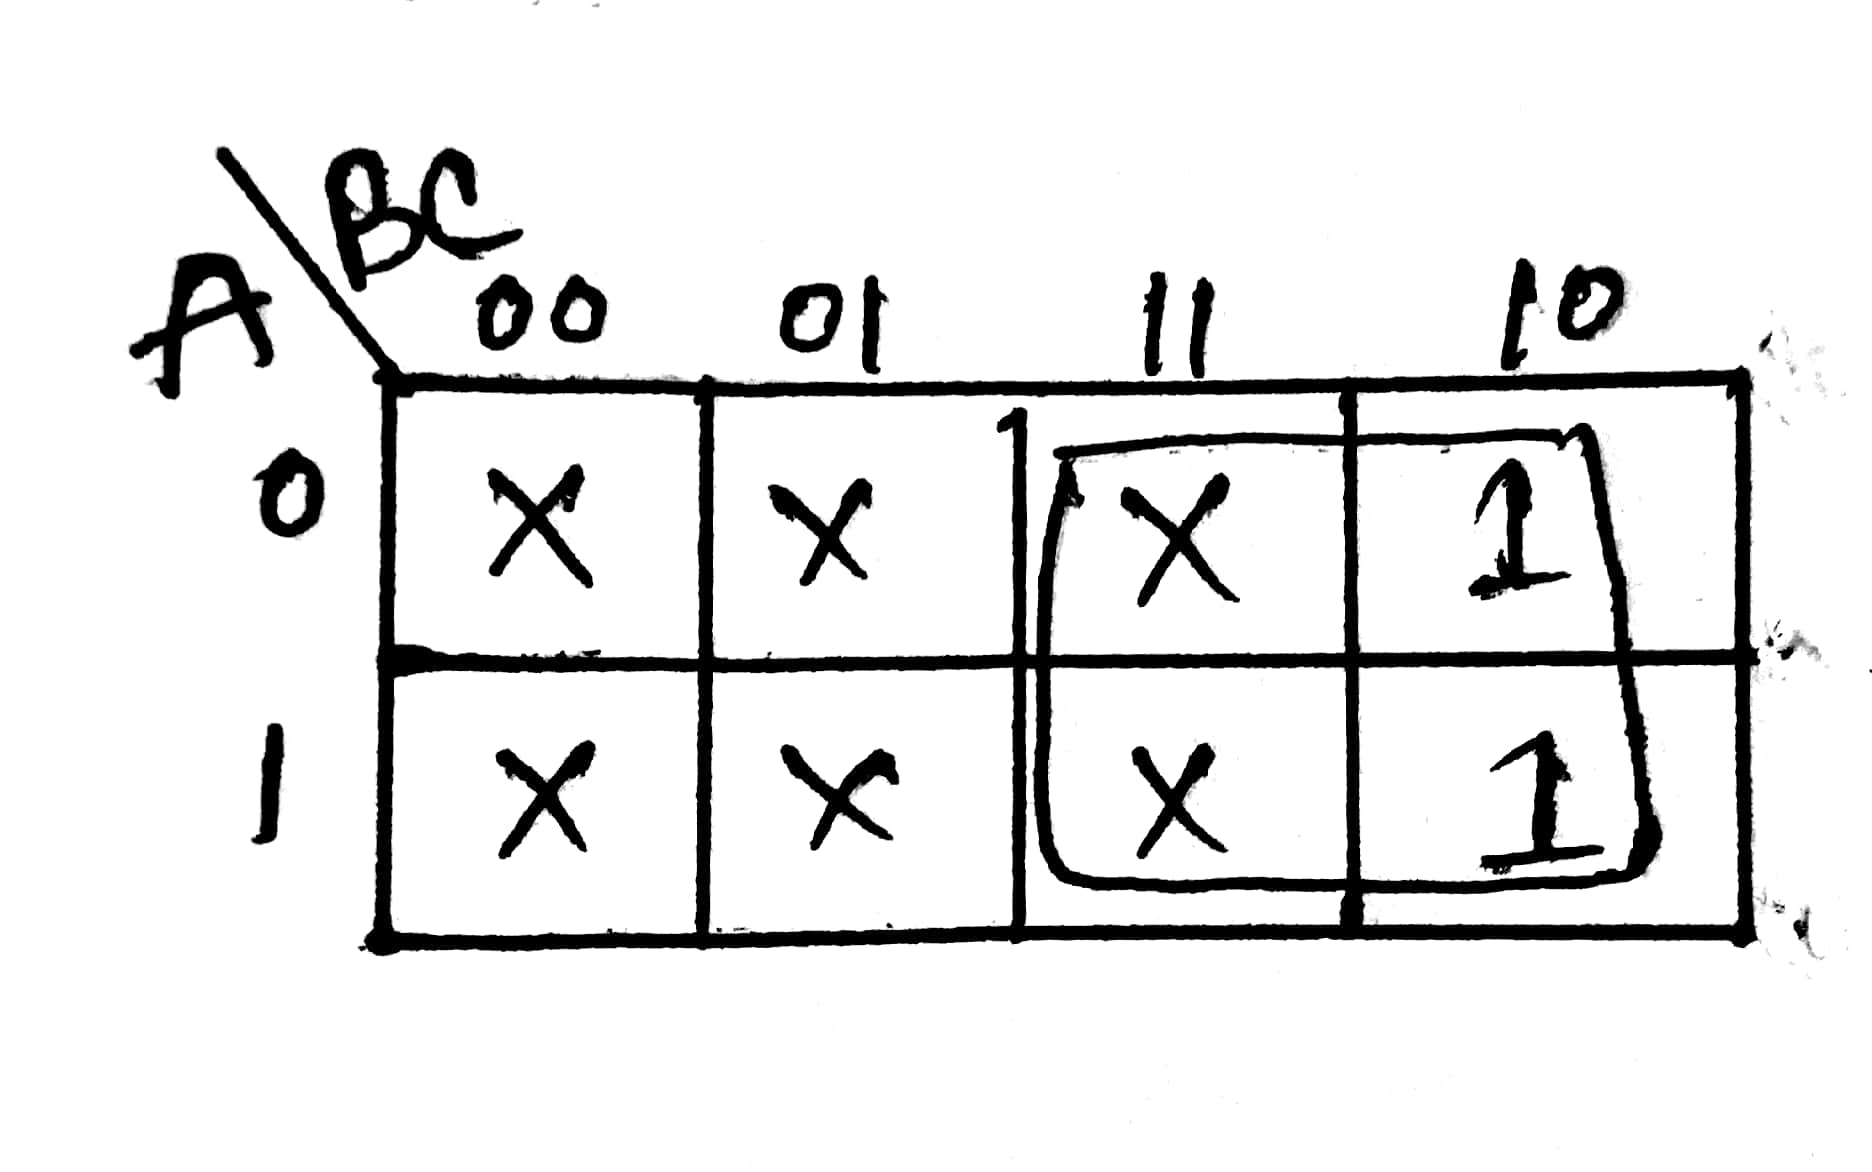 A \ BC
00 01 11 10
0 X X X 1
1 X X X 1